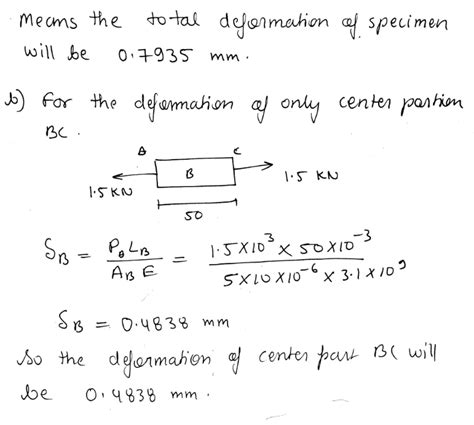 Means the total deformation of specimen
will be 0.7935 mm.
b) For the deformation of only center portion
BC.
B C
B
1.5 KN 1.5 KN
50
δB = PB LB / AB E = 1.5×10³ × 50×10⁻³ / 5×10×10⁻⁶ × 3.1×10⁹
δB = 0.4838 mm
So the deformation of center part BC will
be 0.4838 mm.